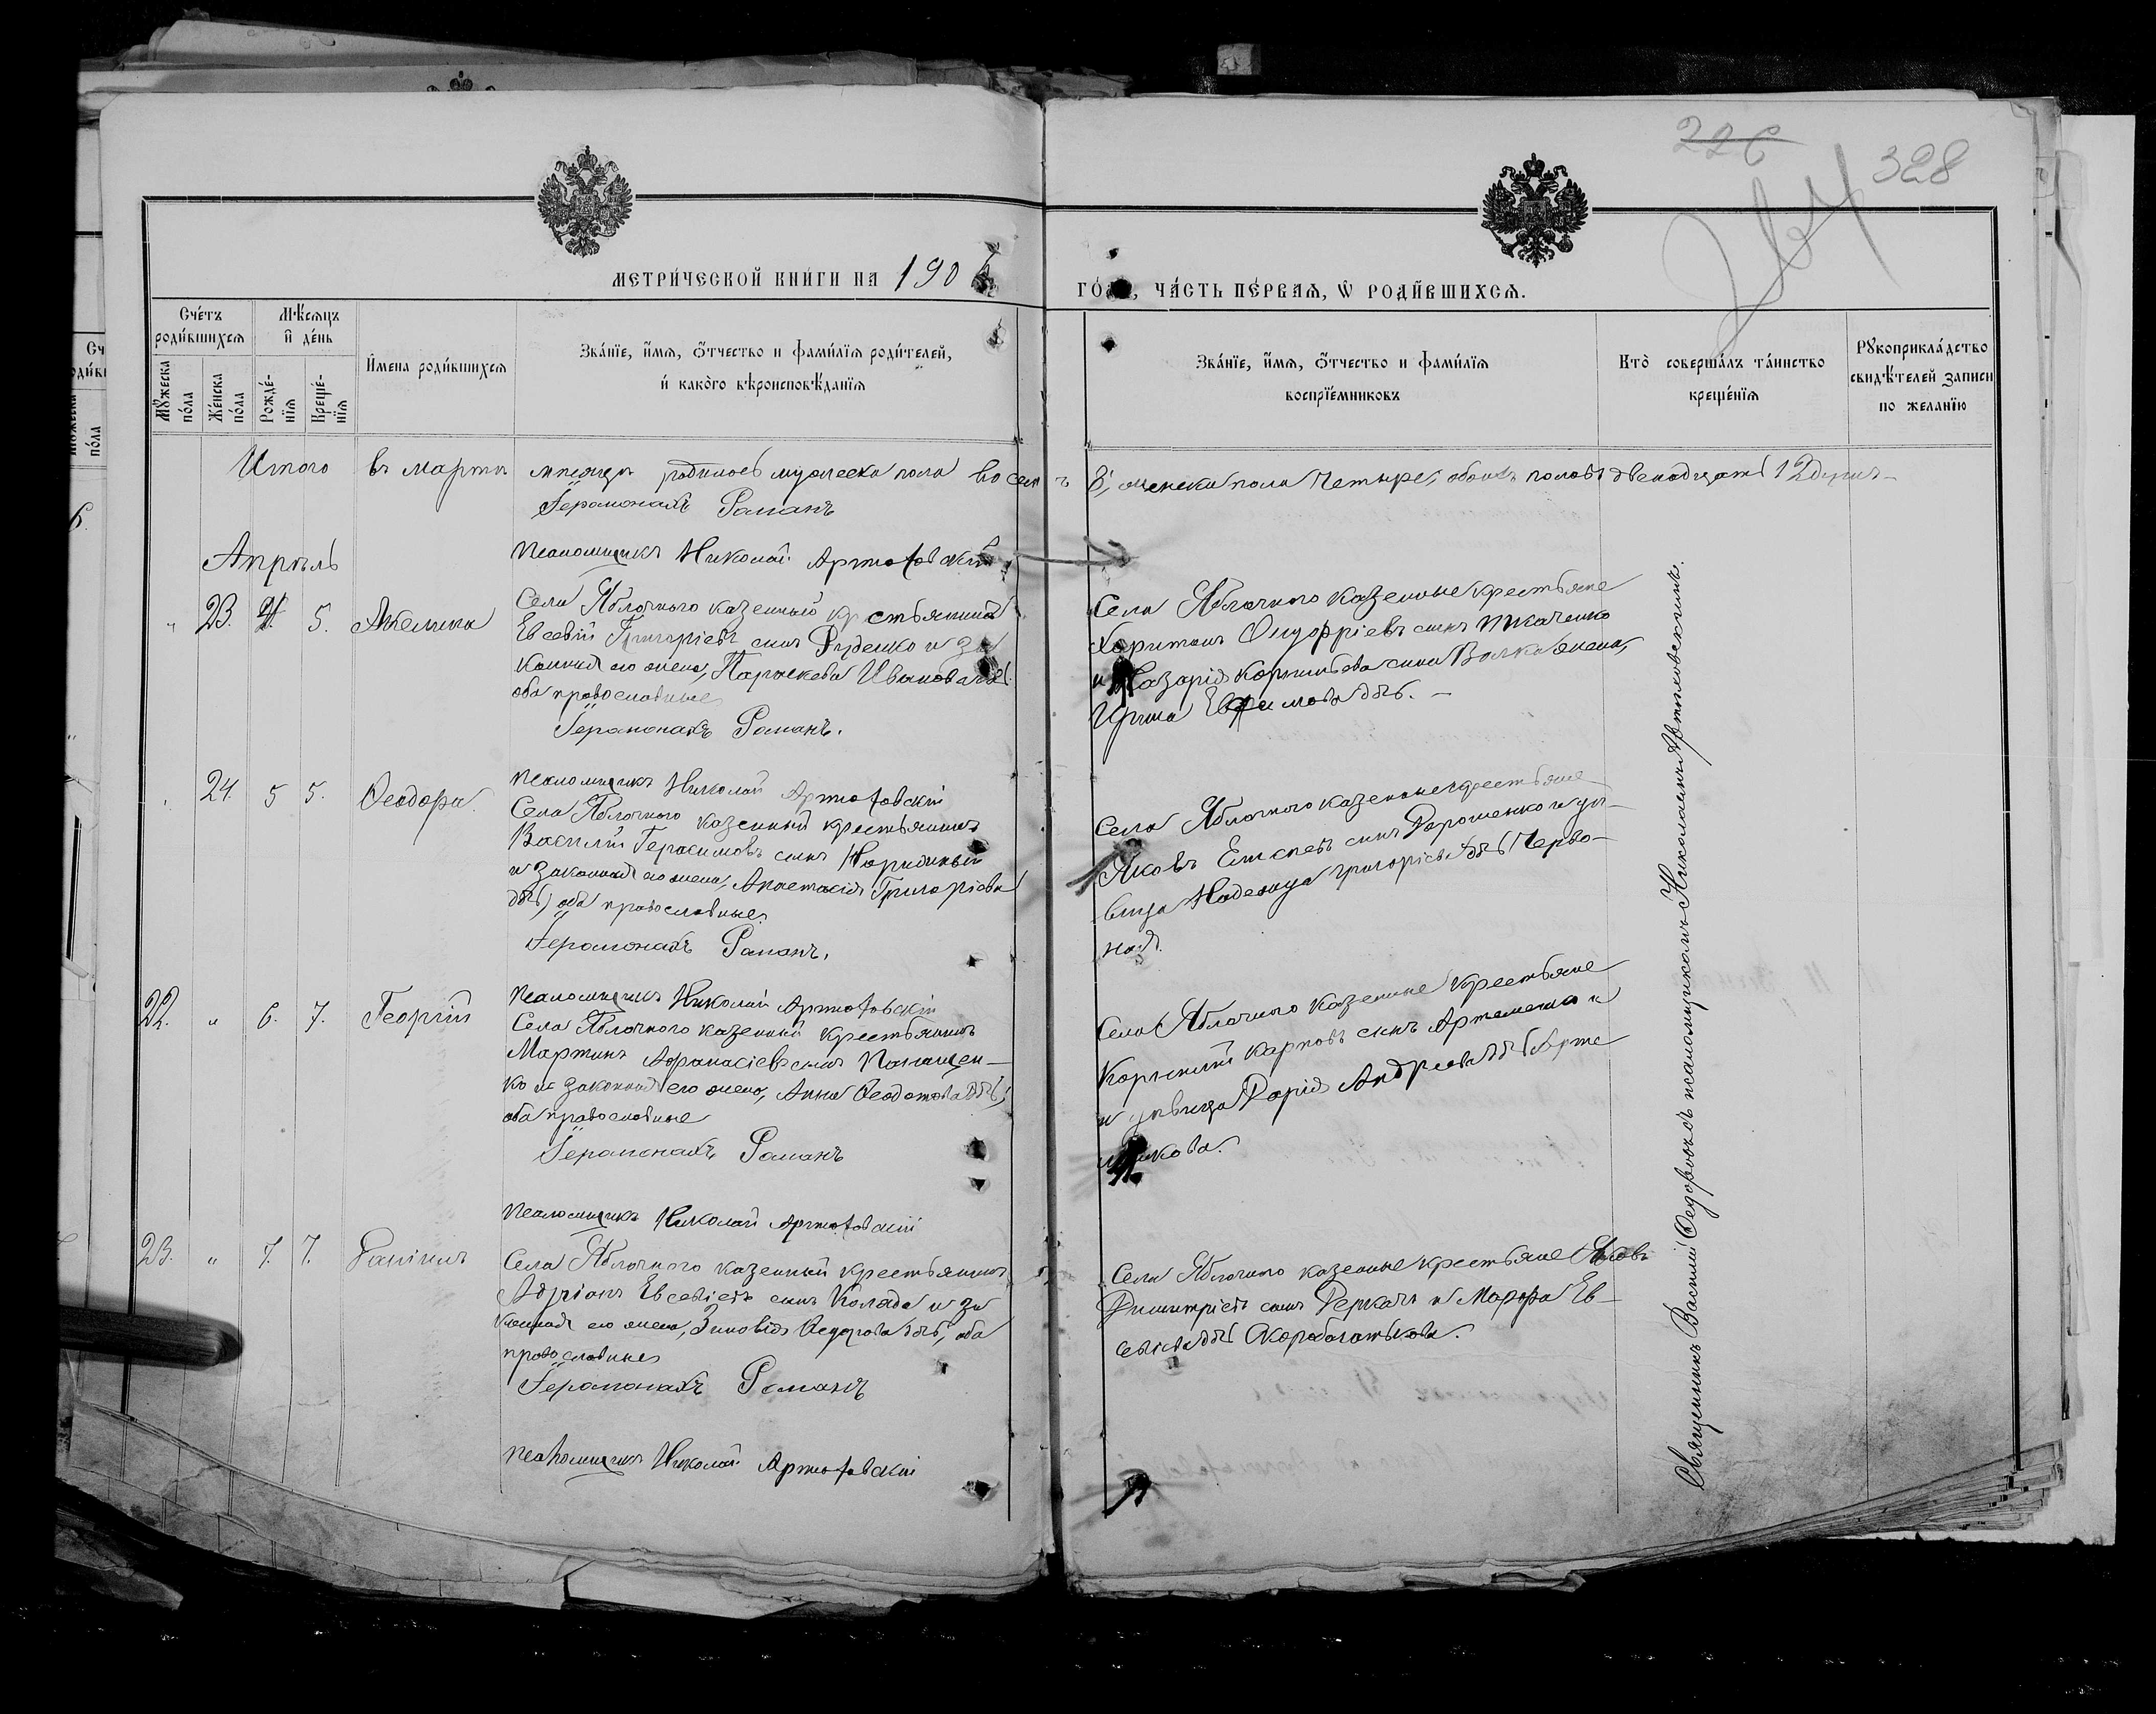 226
328
МЕТРИ́ЧЕСКОЙ КНИ́ГИ НА 190
ГО́ , ЧА́СТЬ ПЕ́РВАѦ, Ѡ РОДИ́ВШИХСѦ.
Сче́тъ роди́вшихсѧ
Мѣ́сѧцъ и҆ де́нь
Мꙋ́жеска по́ла
Же́нска по́ла
Рожде́-нїѧ
Креще́-нїѧ
И҆мена роди́вшихсѧ
Зва́нїе, и҆́мѧ, ѻ҆́тчество и фами́лїѧ роди́телей,
и҆ како́гѡ вѣроисповѣ́данїѧ
Зва́нїе, и҆́мѧ, ѻ҆́тчество и фами́лїѧ
воспрїе́мниковъ
Кто̀ соверша́лъ та́инство
креще́нїѧ
Рꙋкоприкла́дство
свидѣ́телей записи
по желанїю
Итого въ мартѣ мѣсяцѣ родилось мужеска пола восемь 8, женска пола четыре, обоихъ половъ двенадцать 12 душъ
Іеромонахъ Романъ
Псаломщикъ Николай Артюховскій
Апрѣль
" 23. 4. 5. Акелина
Села Яблочного казенный крестьянинъ
Евсевій Григоріевъ сынъ Руденко и за
конная его жена, Параскева Иванова
оба православные
Іеромонахъ Романъ.
Села Яблочного казенные крестьяне
Харитонъ Онуфріевъ сынъ Ткаченко
и Назарія Корнильева сына Волка жена,
Ирина Евфимова дчь.
24. 5 5. Ѳеодора.
Псаломщикъ Николай Артюховскій
Села Яблочного казенный крестьянинъ
Василій Герасимовъ сынъ Нарижный
и законная его жена, Анастасія Григоріева
дчь, оба православные
Іеромонахъ Романъ.
Села Яблочного казенные крестьяне
Яковъ сынъ Дорошенко и дѣ-
вица Надежда Григорієва дчь Черво-
ная.
22. " 6. 7. Георгій
Псаломщикъ Николай Артюховскій
Села Яблочного казенный крестьянинъ
Мартинъ Афанасіевъ сынъ Панащен-
ко и законная его жена, Анна Ѳеодотова дчь,
оба православные
Іеромонахъ Романъ
Села Яблочного казенные крестьяне
Корнилій Карповъ сынъ Артеменко и
и дѣвица Дарія Андреева дчь Арте
кова.
23. " 7. 7. Даніилъ
Псаломщикъ Николай Артюховскій
Села Яблочного казенный крестьянинъ
Адріанъ Евсевіевъ сынъ Коляда и за
конная его жена, Зиновія Ѳедорова дчь, оба
православные
Іеромонахъ Романъ
Села Яблочного казенные крестьяне Яковъ
Димитріевъ сынъ Деркачъ и Марфа Ев-
севіева дчь Скоробогатькова.
Псаломщикъ Николай Артюховскій
Священникъ Василій Ѳедоровъ съ псаломщикомъ Николаемъ Артюховскимъ.